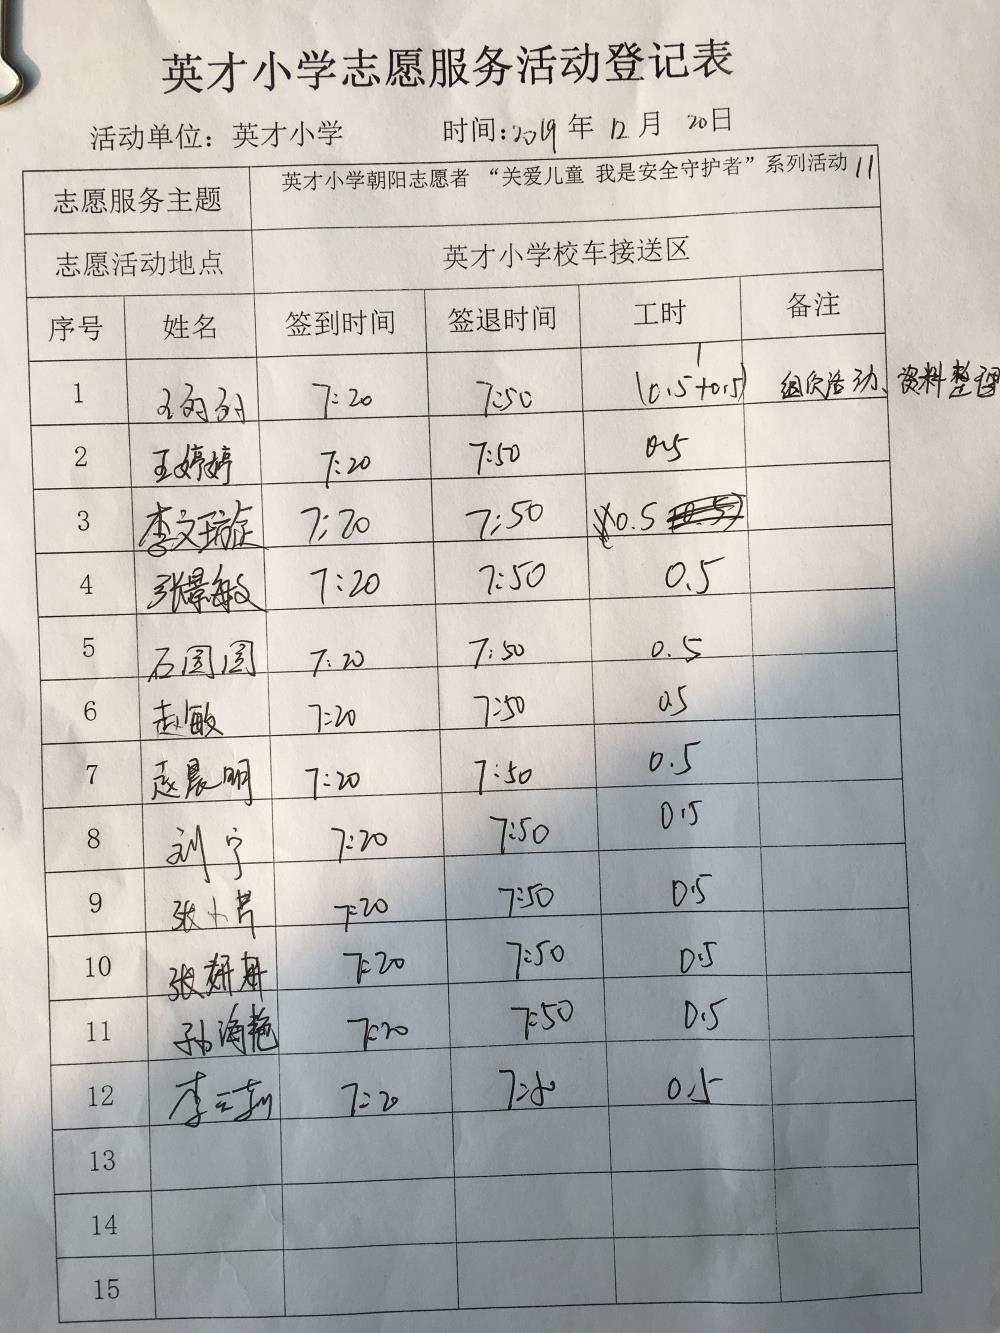 英才小学志愿服务活动登记表
活动单位：英才小学 时间：2019年 12月 20日
志愿服务主题 英才小学朝阳志愿者 “关爱儿童 我是安全守护者”系列活动 11
志愿活动地点 英才小学校车接送区
序号 姓名 签到时间 签退时间 工时 备注
1 7:20 7:50 1 (0.5+0.5) 组织活动、资料整理
2 王婷婷 7:20 7:50 0.5
3 李文 7:20 7:50 0.5
4 张景敏 7:20 7:50 0.5
5 石圆圆 7:20 7:50 0.5
6 赵敏 7:20 7:50 0.5
7 赵晨明 7:20 7:50 0.5
8 刘宁 7:20 7:50 0.5
9 张小芹 7:20 7:50 0.5
10 张妍妍 7:20 7:50 0.5
11 孙海艳 7:20 7:50 0.5
12 李 7:20 7:50 0.5
13
14
15